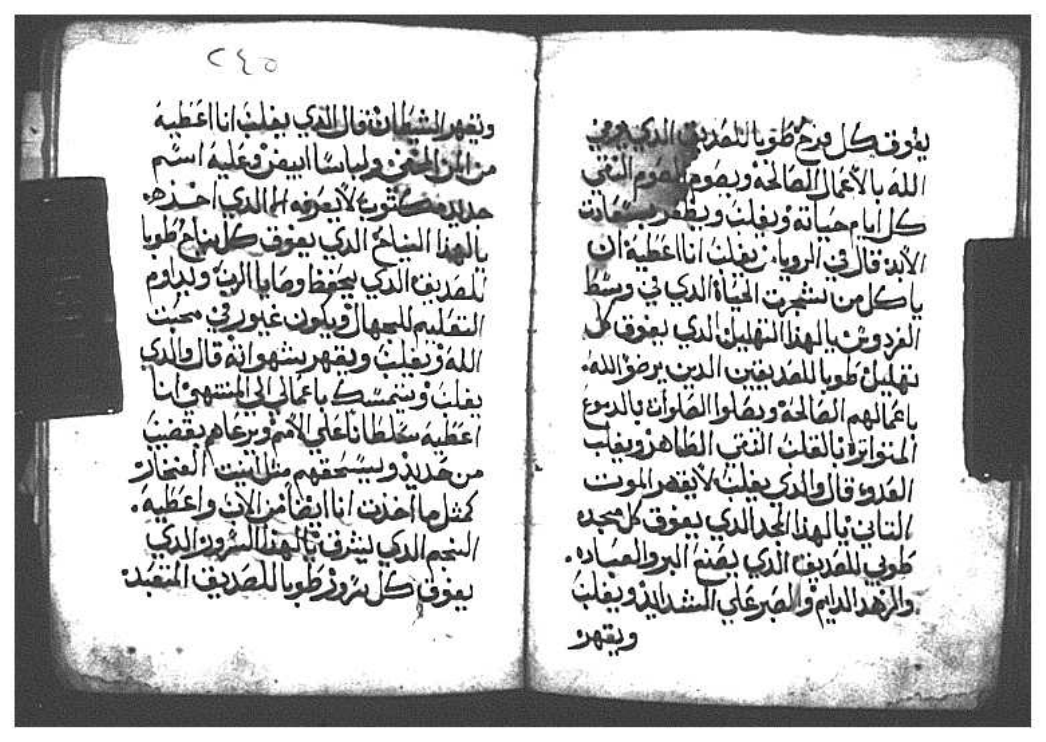 يفوق كل فرح طوبا للصديق الذي يرضي
الله بالاعمال الصالحه ويصوم الصوم النقي
كل ايام حياته ويغلب ويظفر بسعادت
الابد قال في الرويا من يغلب انا اعطيه ان
ياكل من شجرت الحياة الذي في وسط
الفردوس يالهذا التهليل الذي يفوق كل
تهليل طوبا للصديقين الدين يرضو الله
باعمالهم الصالحة ويصلوا الصلوات بالدموع
المتواتره بالقلب النقي الطاهر ويغلب
العدو قال والدي يغلب لا يقهر الموت
التاني يالهذا المجد الدي يفوق كل مجد
طوبي للصديق الذي يصنع البر والعباده
والزهد الدايم والصبر علي الشدايد ويغلب
ويقهر
٢٤٥
ويقهر الشيطان قال الذي يغلب انا اعطيه
من المن المخفي ولباسا ابيض وعليه اسم
جديد مكتوب لا يعرفه الا الدي اخده
يالهذا النياح الدي يفوق كل نياح طوبا
للصديق الدي يحفظ وصايا الرب ويداوم
التعليم للجهال ويكون غيور في محبت
الله ويغلب ويقهر شهواته قال والدي
يغلب ويتمسك باعمالي الي المنتهي انا
اعطيه سلطانا علي الامم ويرعاهم بقضيب
من حديد ويسحقهم مثل انيت الفخار
كمثل ما اخذت انا ايضا من الاب واعطيه
النجم الدي يشرق يالهذا السرور الدي
يفوق كل سرور طوبا للصديق المتعبد